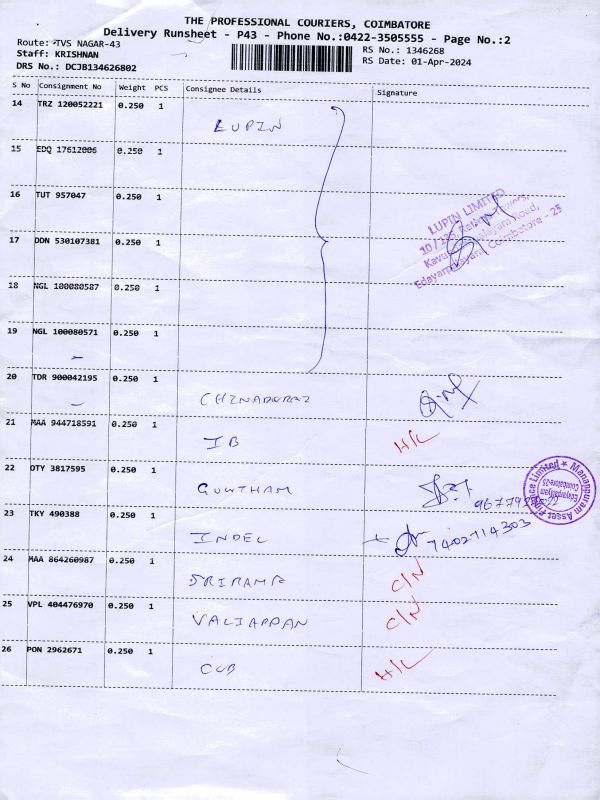 THE PROFESSIONAL COURIERS, COIMBATORE
Delivery Runsheet - P43 - Phone No.:0422-3505555 - Page No.:2
Route: TVS NAGAR-43
RS No.: 1346268
Staff: KRISHNAN
RS Date: 01-Apr-2024
DRS No.: DCJB134626802
S No Consignment No Weight PCS Consignee Details Signature
14 TRZ 120052221 0.250 1 LUPIN
15 EDQ 17612006 0.250 1
16 TUT 957047 0.250 1
LUPIN LIMITED
17 DDN 530107381 0.250 1
Edayarpalayam, Coimbatore - 25
18 NGL 100080587 0.250 1
19 NGL 100080571 0.250 1
20 TDR 900042195 0.250 1 CHINADURAI
21 MAA 944718591 0.250 1 IB H/L
22 OTY 3817595 0.250 1 GOWTHAM
Manappuram Asset Finance Limited
Edayarpalayam
Coimbatore-25
23 TKY 490388 0.250 1 INDEL 7402714303
24 MAA 864260987 0.250 1 SRIRAMA C/N
25 VPL 404476970 0.250 1 VALIAPPAN C/N
26 PON 2962671 0.250 1 CUB H/L